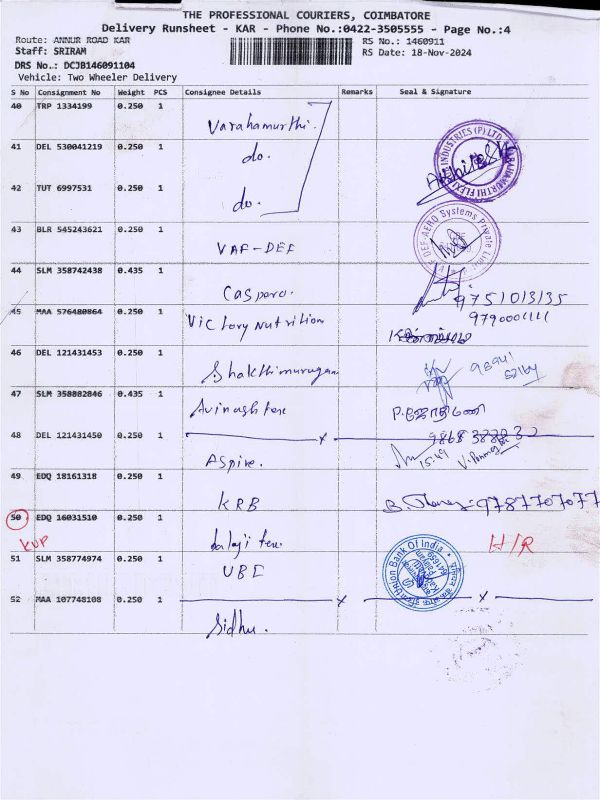 THE PROFESSIONAL COURIERS, COIMBATORE
Delivery Runsheet - KAR - Phone No.:0422-3505555 - Page No.:4
Route: ANNUR ROAD KAR
RS No.: 1460911
Staff: SRIRAM
RS Date: 18-Nov-2024
DRS No.: DCJB146091104
Vehicle: Two Wheeler Delivery
S No Consignment No Weight PCS Consignee Details Remarks Seal & Signature
40 TRP 1334199 0.250 1
Varahamurthi.
41 DEL 530041219 0.250 1
do.
42 TUT 6997531 0.250 1
do.
43 BLR 545243621 0.250 1
VAF-DEF
44 SLM 358742438 0.435 1
Caspero. 9751013135
45 MAA 576480864 0.250 1
Victory Nutrition 9790001111
46 DEL 121431453 0.250 1
Shakthimurugan
47 SLM 358882846 0.435 1
Avinash tex P.ஜோதிமணி
48 DEL 121431450 0.250 1
Aspire. 15:49
49 EDQ 18161318 0.250 1
KRB 9787707077
50 EDQ 16031510 0.250 1
KUP
balaji tex. H/R
51 SLM 358774974 0.250 1
UBI Union Bank Of India
52 MAA 107748108 0.250 1
Sidhu.